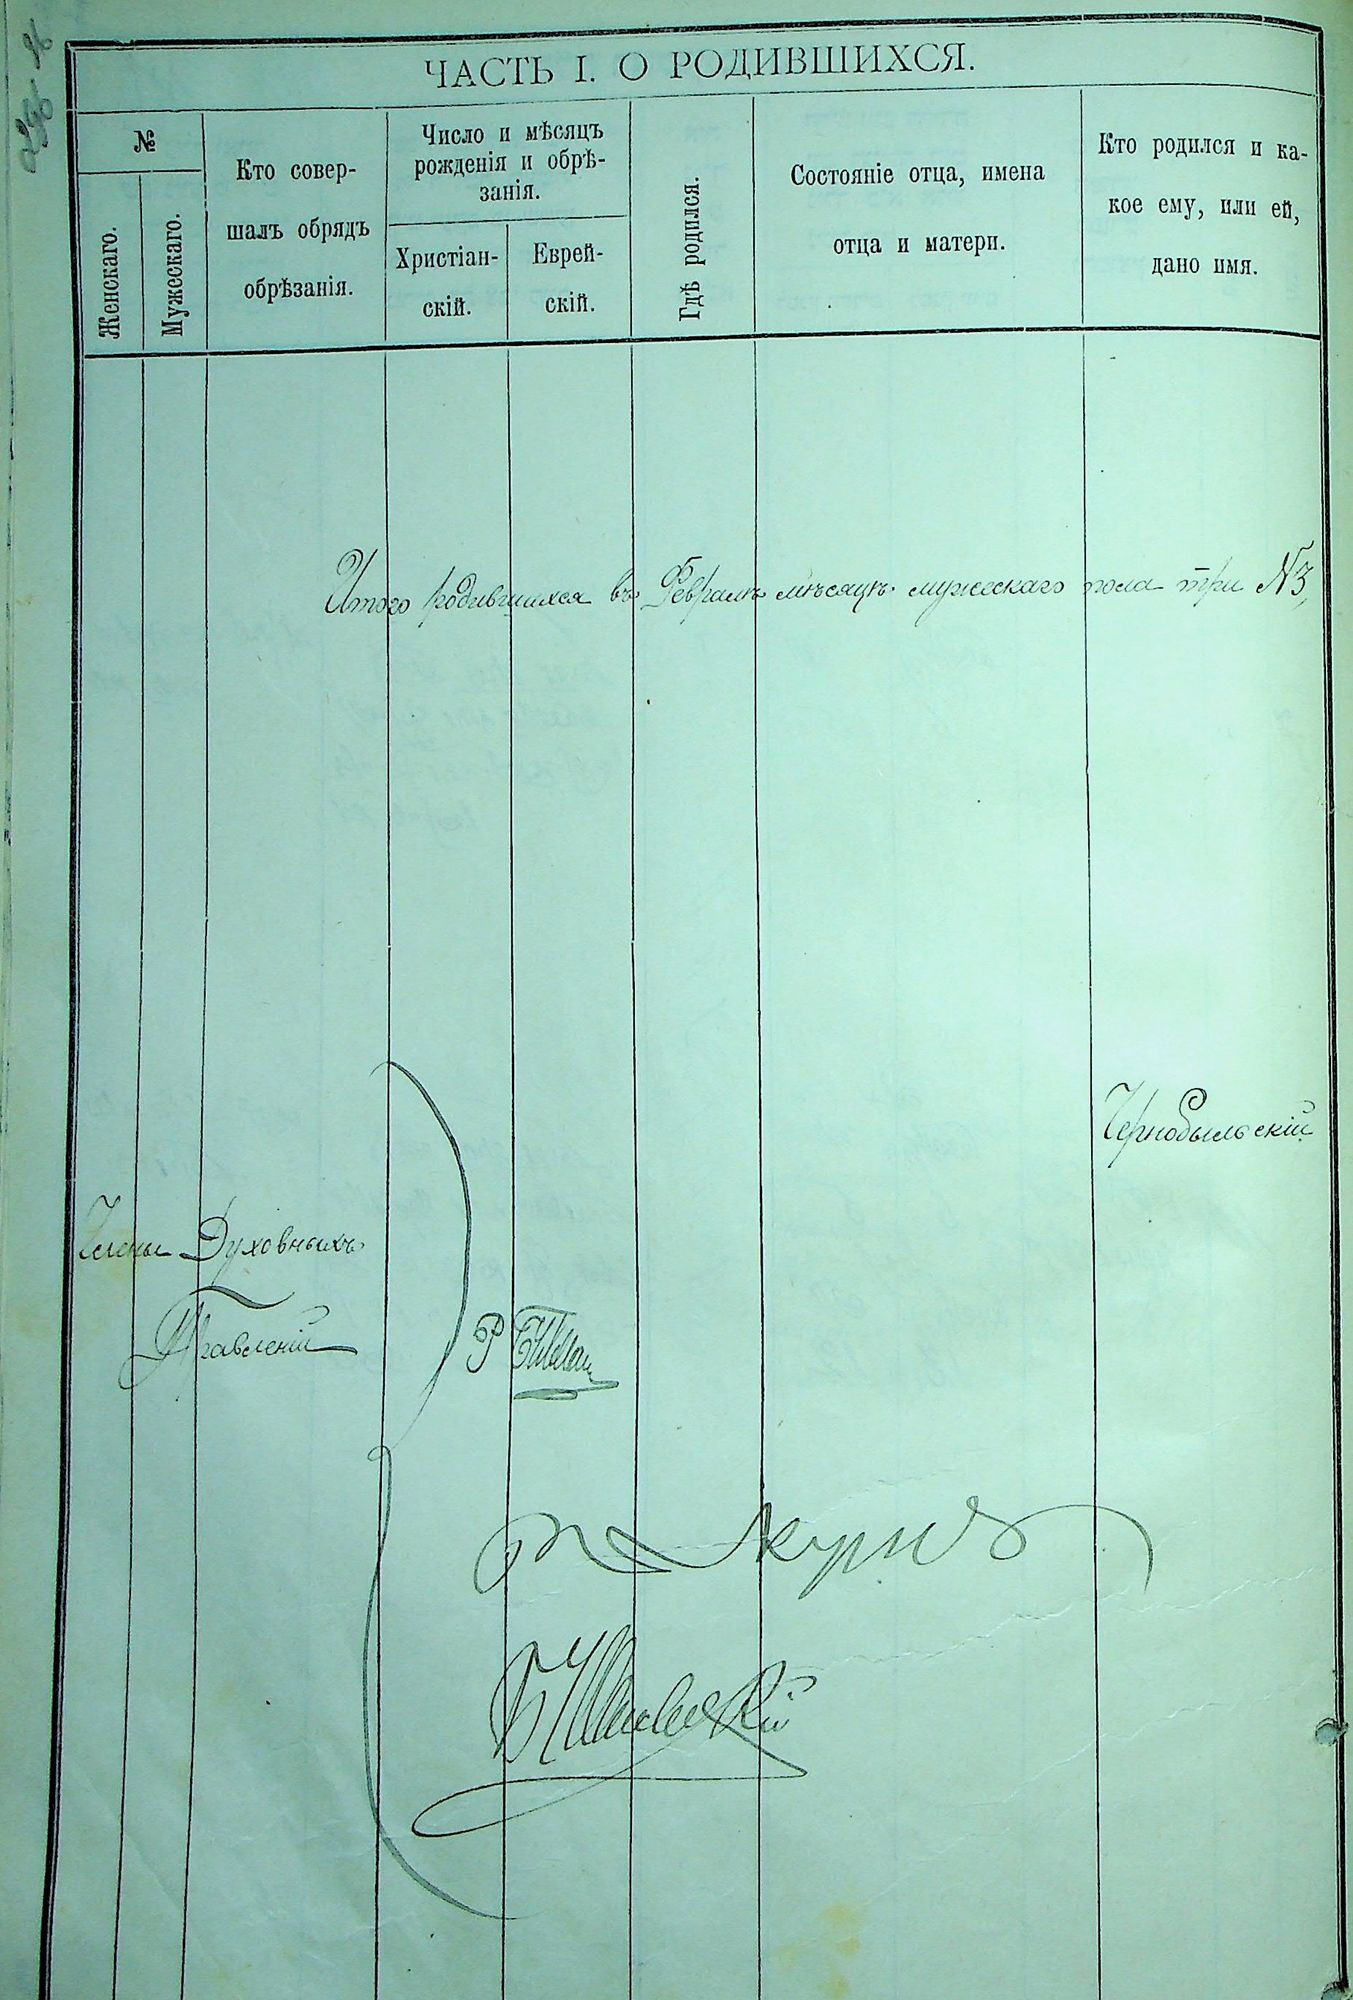 ЧАСТЬ I. О РОДИВШИХСЯ.
№
Женскаго.
Мужескаго.
Кто совер-
шалъ обрядъ
обрѣзанія.
Число и мѣсяцъ
рожденія и обрѣ-
занія.
Христіан-
скій.
Еврей-
скій.
Гдѣ родился.
Состояніе отца, имена
отца и матери.
Кто родился и ка-
кое ему, или ей,
дано имя.
Итого родившихся въ Февралѣ мѣсяцѣ мужескаго пола три №3,
Чернобыльскій
Члены Духовныхъ
Правленій